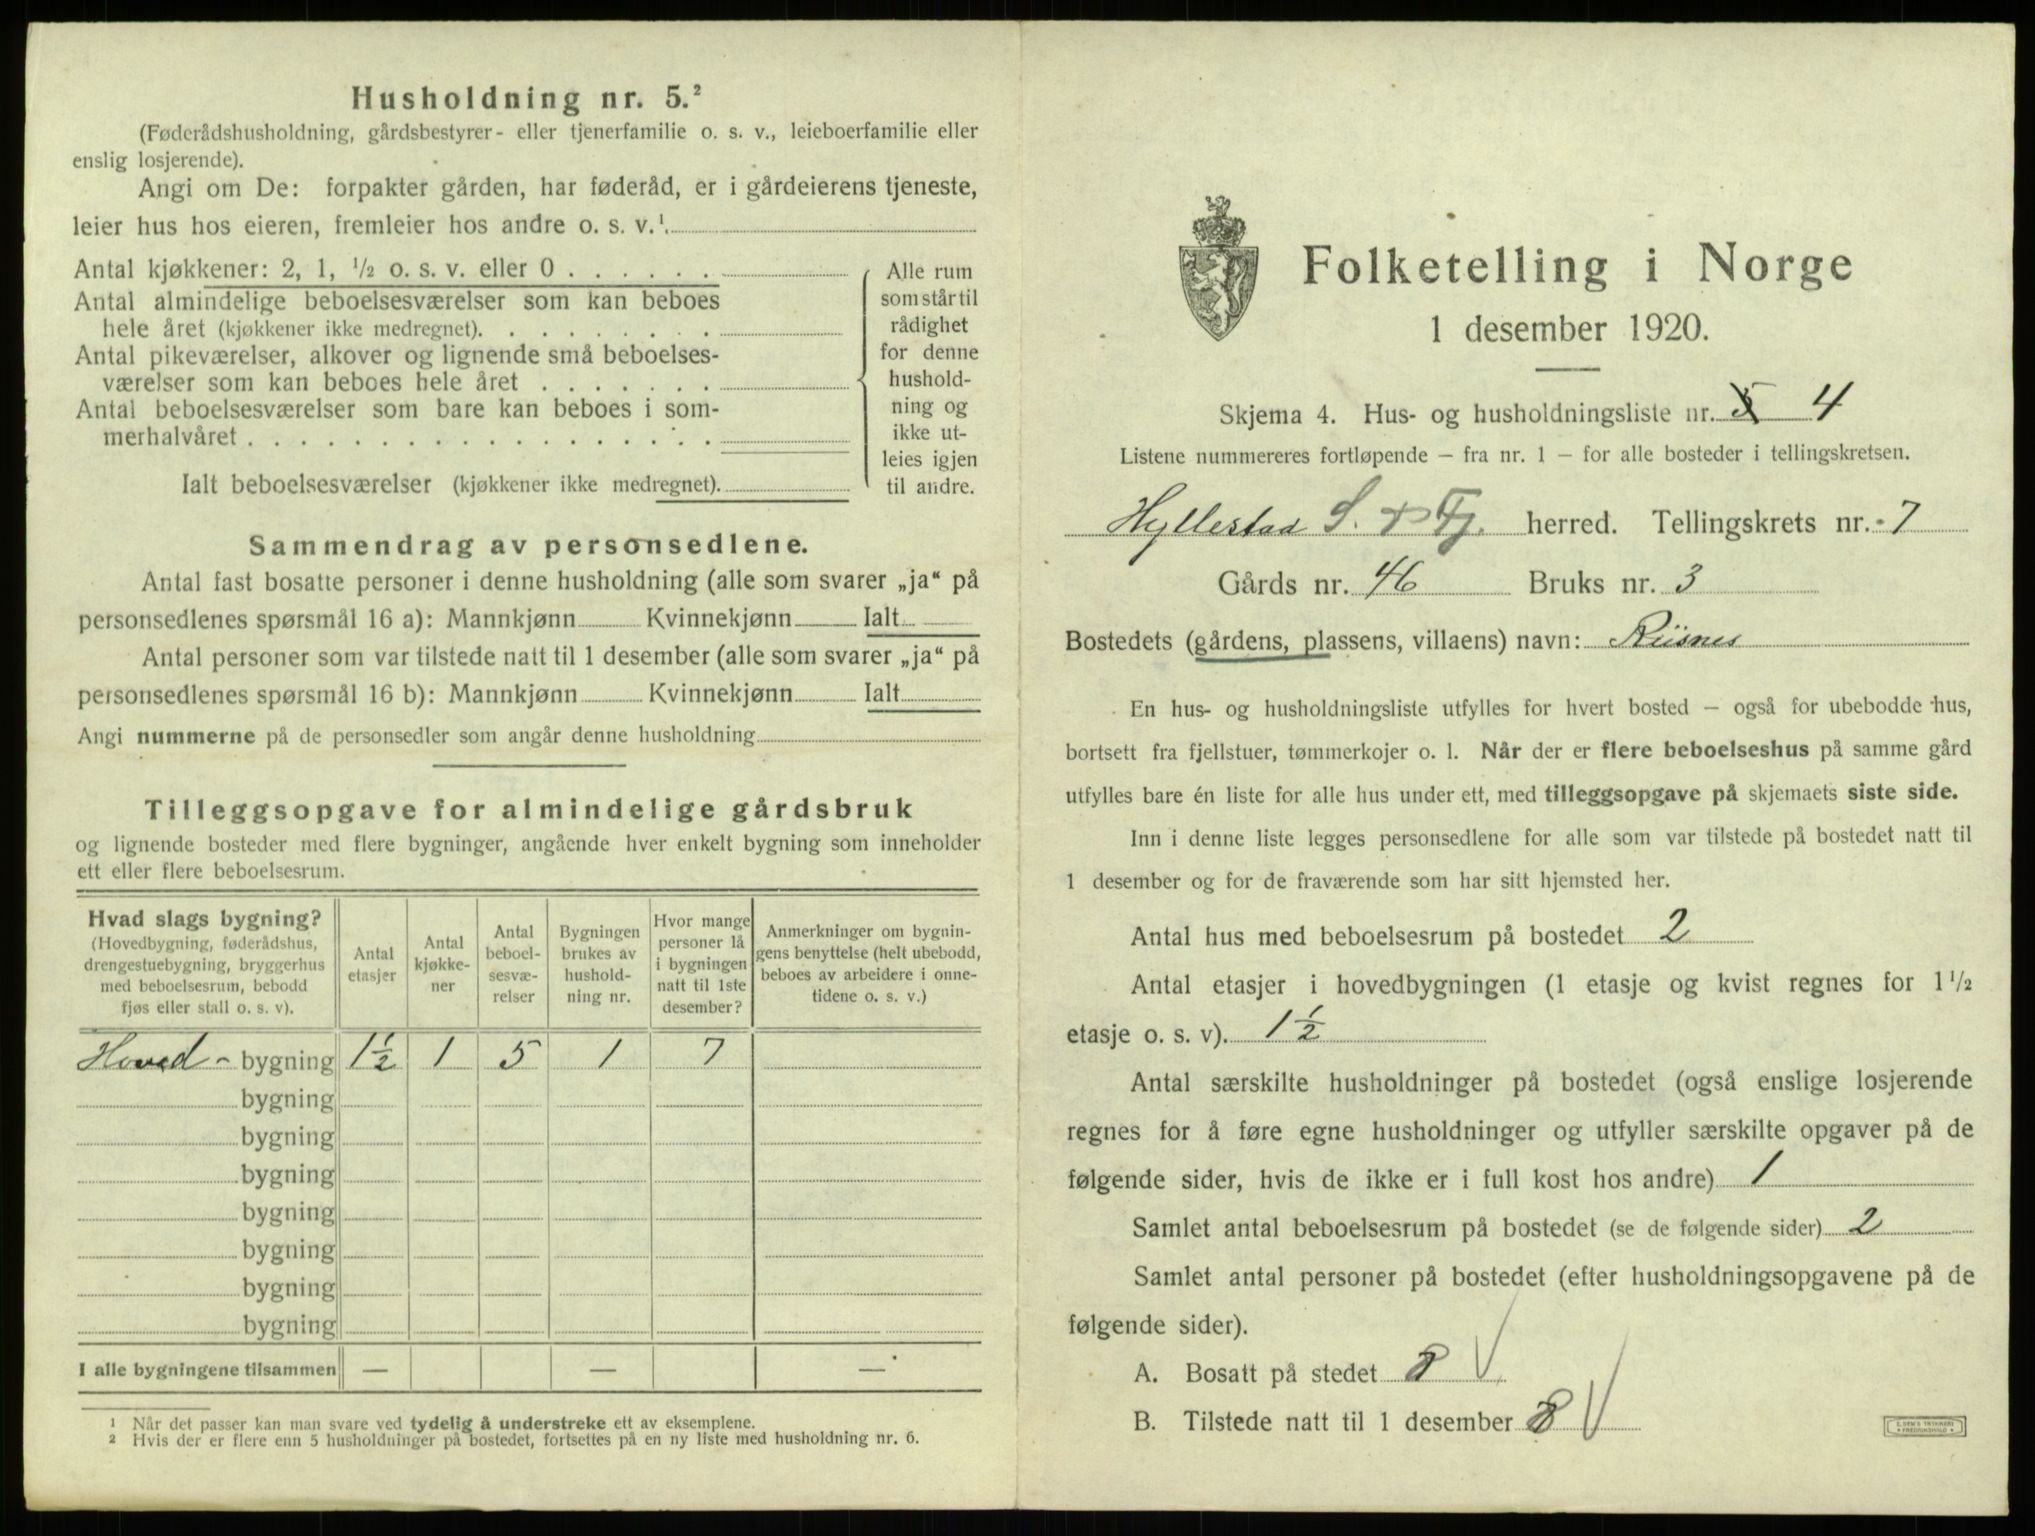 Husholdning nr. 5.²
(Føderådshusholdning, gårdsbestyrer- eller tjenerfamilie o. s. v., leieboerfamilie eller
enslig losjerende).
Angi om De: forpakter gården, har føderåd, er i gårdeierens tjeneste,
leier hus hos eieren, fremleier hos andre o. s. v.¹.
Antal kjøkkener: 2, 1, ½ o. s. v. eller 0 . . . . . .
Antal almindelige beboelsesværelser som kan beboes
hele året (kjøkkener ikke medregnet). . . . . . . . .
Antal pikeværelser, alkover og lignende små beboelses-
værelser som kan beboes hele året . . . . . . .
Antal beboelsesværelser som bare kan beboes i som-
merhalvåret . . . . . . . . . . . . . . . . . .
Ialt beboelsesværelser (kjøkkener ikke medregnet).
Alle rum
som står til
rådighet
for denne
hushold-
ning og
ikke ut-
leies igjen
til andre.
Sammendrag av personsedlene.
Antal fast bosatte personer i denne husholdning (alle som svarer „ja“ på
personsedlenes spørsmål 16 a): Mannkjønn Kvinnekjønn Ialt
Antal personer som var tilstede natt til 1 desember (alle som svarer „ja“ på
personsedlenes spørsmål 16 b): Mannkjønn Kvinnekjønn Ialt
Angi nummerne på de personsedler som angår denne husholdning
Tilleggsopgave for almindelige gårdsbruk
og lignende bosteder med flere bygninger, angående hver enkelt bygning som inneholder
ett eller flere beboelsesrum.
Hvad slags bygning?
(Hovedbygning, føderådshus,
drengestuebygning, bryggerhus
med beboelsesrum, bebodd
fjøs eller stall o. s. v).
Antal
etasjer
Antal
kjøkke-
ner
Antal
beboel-
sesvæ-
relser
Bygningen
brukes av
hushold-
ning nr.
Hvor mange
personer lå
i bygningen
natt til 1ste
desember?
Anmerkninger om bygnin-
gens benyttelse (helt ubebodd,
beboes av arbeidere i onne-
tidene o. s. v.)
Hoved - bygning 1½ 1 5 1 7
bygning
bygning
bygning
bygning
bygning
bygning
bygning
I alle bygningene tilsammen — — —
¹ Når det passer kan man svare ved tydelig å understreke ett av eksemplene.
² Hvis der er flere enn 5 husholdninger på bostedet, fortsettes på en ny liste med husholdning nr. 6.
Folketelling i Norge
1 desember 1920.
Skjema 4. Hus- og husholdningsliste nr. 5 4
Listene nummereres fortløpende — fra nr. 1 — for alle bosteder i tellingskretsen.
Hyllestad S. & Fj. herred. Tellingskrets nr. 7
Gårds nr. 46 Bruks nr. 3
Bostedets (gårdens, plassens, villaens) navn: Riisnes
En hus- og husholdningsliste utfylles for hvert bosted — også for ubebodde hus,
bortsett fra fjellstuer, tømmerkojer o. l. Når der er flere beboelseshus på samme gård
utfylles bare én liste for alle hus under ett, med tilleggsopgave på skjemaets siste side.
Inn i denne liste legges personsedlene for alle som var tilstede på bostedet natt til
1 desember og for de fraværende som har sitt hjemsted her.
Antal hus med beboelsesrum på bostedet 2
Antal etasjer i hovedbygningen (1 etasje og kvist regnes for 1½
etasje o. s. v). 1½
Antal særskilte husholdninger på bostedet (også enslige losjerende
regnes for å føre egne husholdninger og utfyller særskilte opgaver på de
følgende sider, hvis de ikke er i full kost hos andre) 1
Samlet antal beboelsesrum på bostedet (se de følgende sider) 2
Samlet antal personer på bostedet (efter husholdningsopgavene på de
følgende sider).
A. Bosatt på stedet 8 V
B. Tilstede natt til 1 desember 8 V